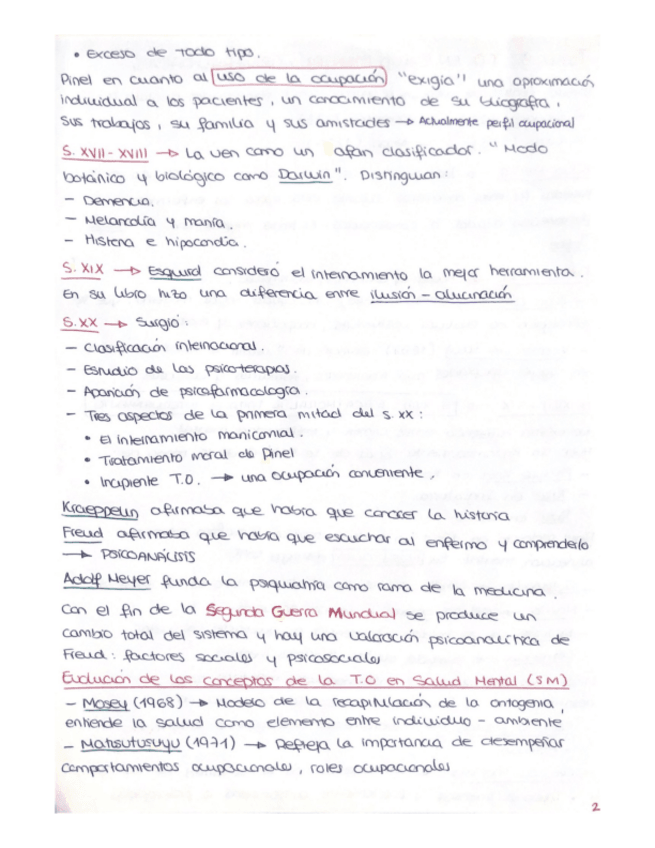 • Exceso de todo tipo.
Pinel en cuanto al uso de la ocupación "exigía" una aproximación
individual a los pacientes, un conocimiento de su biografía,
sus trabajos, su familia y sus amistades → Actualmente perfil ocupacional
S. XVII - XVIII → La ven como un afán clasificador. "Modo
botánico y biológico como Darwin". Distinguían:
- Demencia.
- Melancolía y manía.
- Histeria e hipocondía.
S. XIX → Esquirol consideró el internamiento la mejor herramienta.
En su libro hizo una diferencia entre ilusión - alucinación
S. XX → Surgió:
- Clasificación internacional.
- Estudio de las psicoterapias.
- Aparición de psicofarmacología.
- Tres aspectos de la primera mitad del s. XX:
• El internamiento manicomial.
• Tratamiento moral de Pinel
• Incipiente T.O. → una ocupación conveniente.
Kraeppelin afirmaba que había que conocer la historia
Freud afirmaba que había que escuchar al enfermo y comprenderlo
→ PSICOANÁLISIS
Adolf Meyer funda la psiquiatría como rama de la medicina.
Con el fin de la Segunda Guerra Mundial se produce un
cambio total del sistema y hay una valoración psicoanalítica de
Freud: factores sociales y psicosociales
Evolución de los conceptos de la T.O en Salud Mental (SM)
- Mosey (1968) → Modelo de la recapitulación de la ontogenia,
entiende la salud como elemento entre individuo - ambiente
- Matsutusuyu (1971) → Refleja la importancia de desempeñar
comportamientos ocupacionales, roles ocupacionales
2